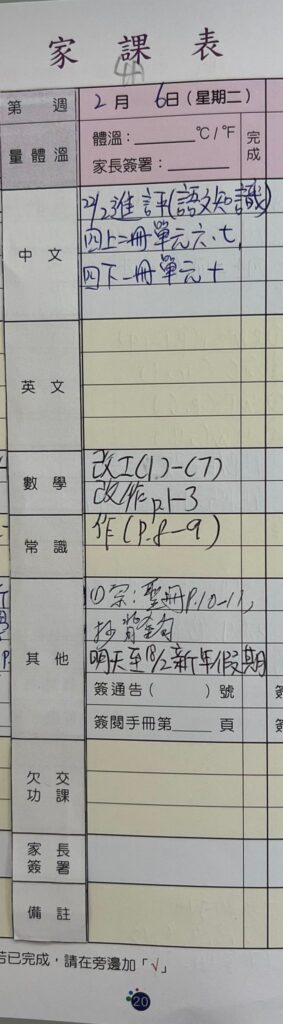 家課表
4A
第 週
2月 6日(星期二)
量體溫
體溫:______℃/℉
家長簽署:______
完成
中文
22/2進評(語文知識)
四上二冊單元六、七,
四下一冊單元十
英文
數學
改工(1)-(7)
改作 p.1-3
常識
作(P.8-9)
其他
(1)宗:聖冊P.10-11,
抄背金句
明天至18/2新年假期
簽通告( )號
簽閱手冊第__頁
欠交功課
家長簽署
備註
若已完成,請在旁邊加「√」
20